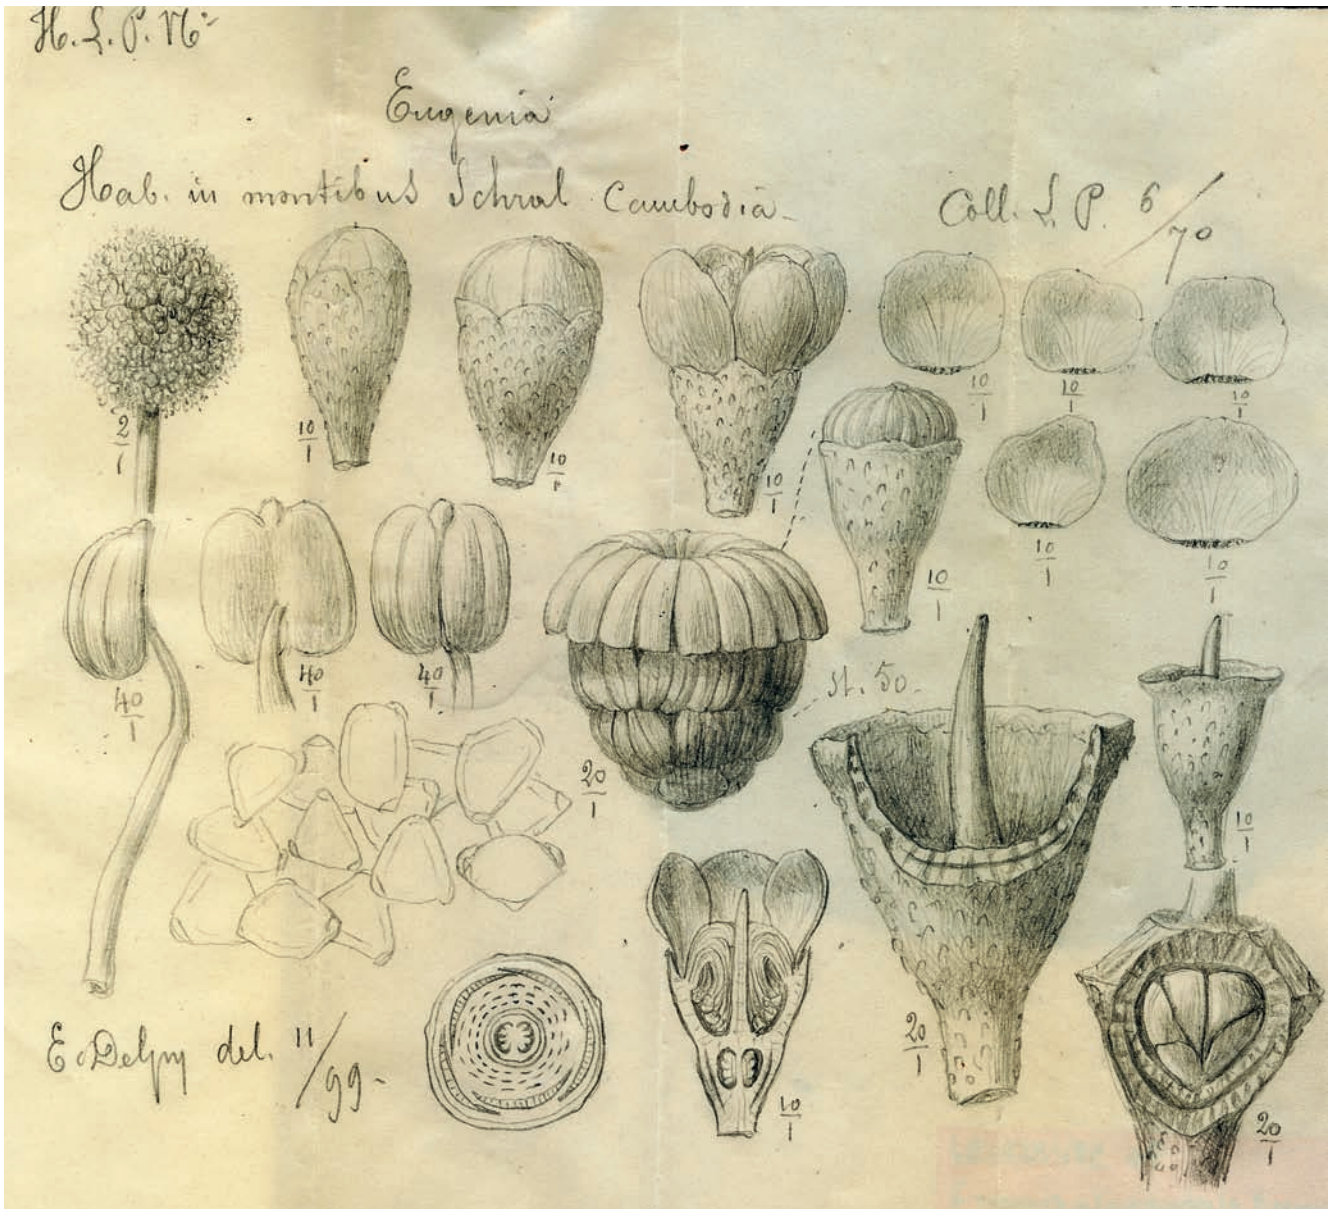 H. L. P. Nº
Eugenia
Hab. in montibus Schral Cambodia
Coll. L. P. 6/70
2/1
10/1
10/1
10/1
10/1
10/1
10/1
10/1
10/1
10/1
40/1
40/1
40/1
st. 50.
20/1
10/1
20/1
10/1
20/1
E. Delpy del. 11/99